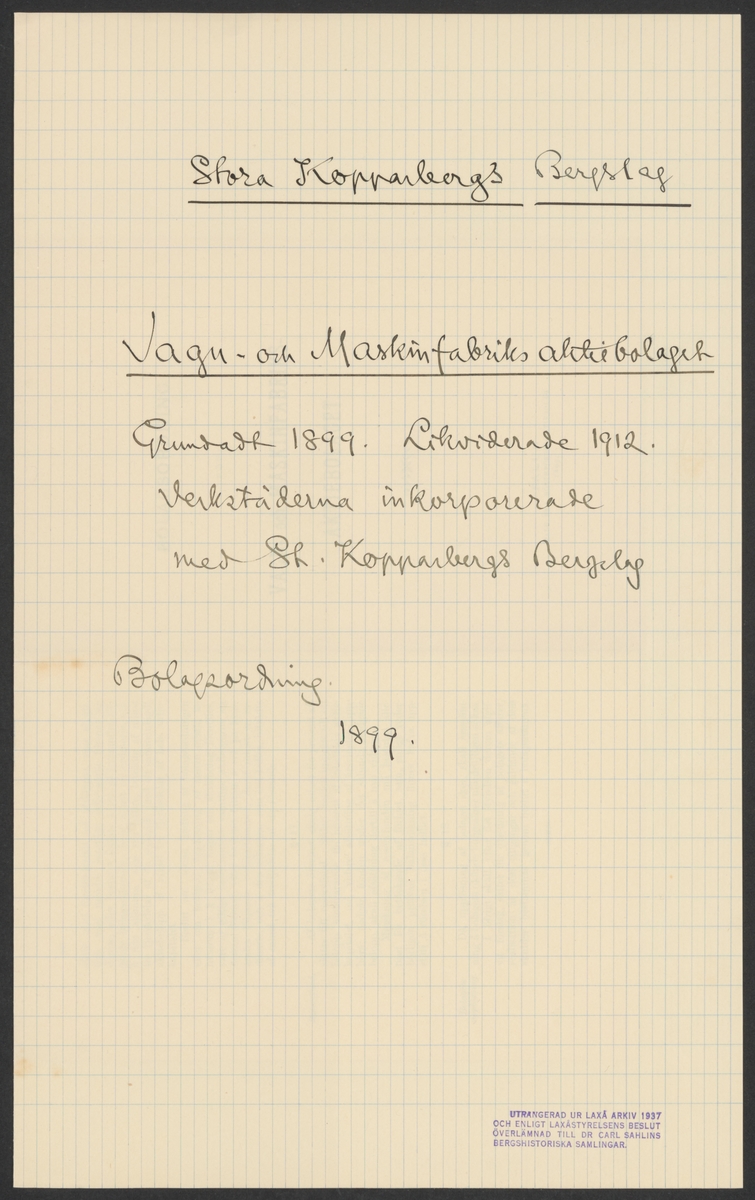 Stora Kopparbergs Bergslag
Vagn- och Maskinfabriks aktiebolaget
Grundadt 1899. Likviderade 1912.
Verkstäderna inkorporerade
med St. Kopparbergs Bergslag
Bolagsordning.
1899.
UTRANGERAD UR LAXÅ ARKIV 1937
OCH ENLIGT LAXÅSTYRELSENS BESLUT
ÖVERLÄMNAD TILL DR CARL SAHLINS
BERGSHISTORISKA SAMLINGAR.